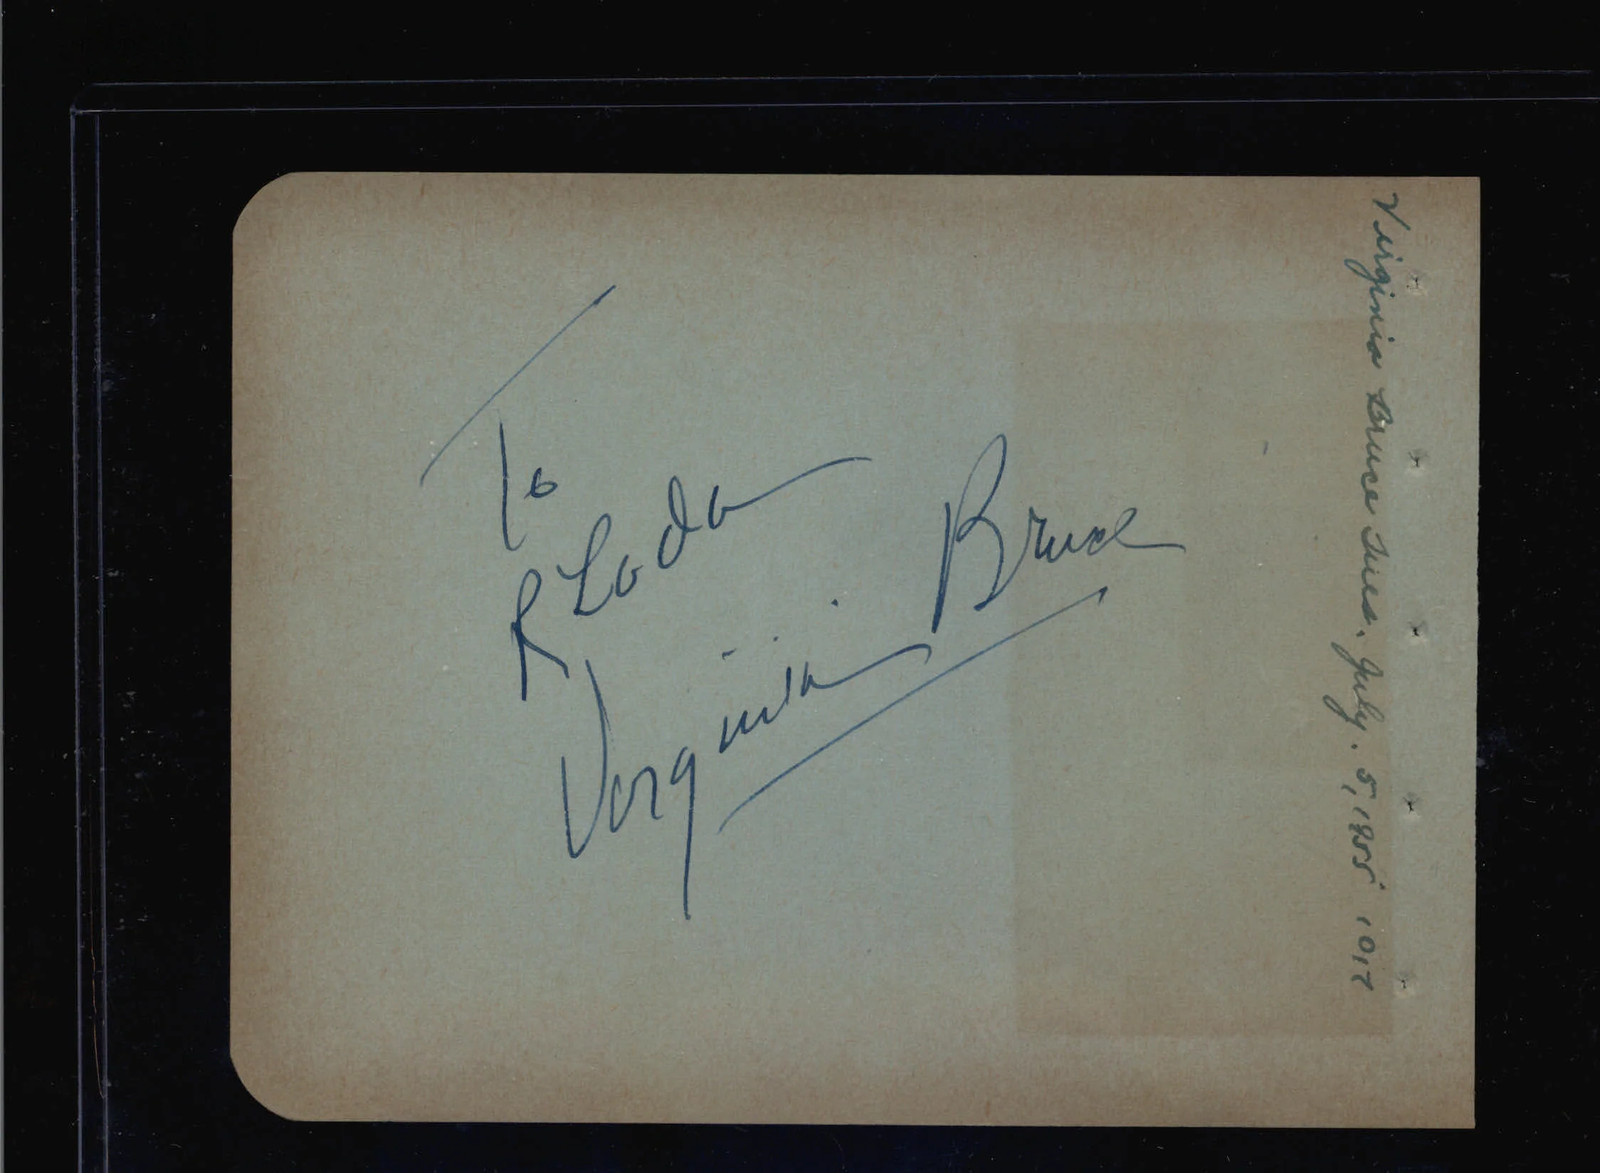 To
Rhoda
Virginia Bruce
Virginia Bruce Tues. July. 5, 1955